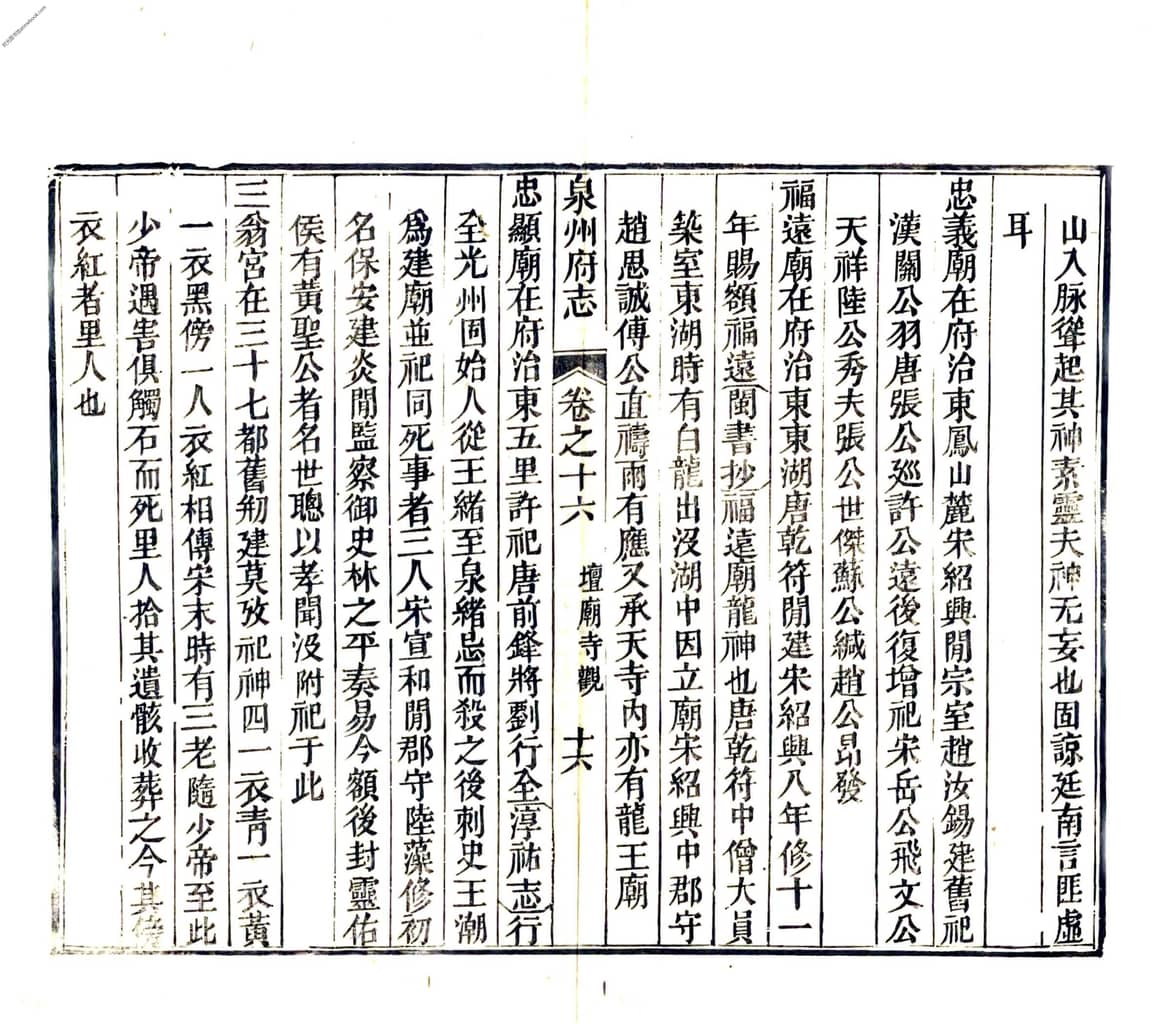 山入脉聳起其神素靈夫神无妄也固諒廷南言匪虛
耳
忠義廟在府治東鳳山麓宋紹興閒宗室趙汝錫建舊祀
漢關公羽唐張公廵許公遠後復增祀宋岳公飛文公
天祥陸公秀夫張公世傑蘇公緘趙公昂發
福遠廟在府治東東湖唐乾符閒建宋紹興八年修十一
年賜額福遠閩書抄福遠廟龍神也唐乾符中僧大員
築室東湖時有白龍出沒湖中因立廟宋紹興中郡守
趙思誠傅公直禱雨有應又承天寺內亦有龍王廟
泉州府志 卷之十六 壇廟寺觀 十六
忠顯廟在府治東五里許祀唐前鋒將劉行全淳祐志行
全光州固始人從王緒至泉緒忌而殺之後刺史王潮
爲建廟並祀同死事者三人宋宣和閒郡守陸藻修初
名保安建炎閒監察御史林之平奏易今額後封靈佑
侯有黃聖公者名世聰以孝聞沒附祀于此
三翁宮在三十七都舊剏建莫攷祀神四一衣青一衣黃
一衣黑傍一人衣紅相傳宋末時有三老隨少帝至此
少帝遇害俱觸石而死里人拾其遺骸收葬之今其傍
衣紅者里人也